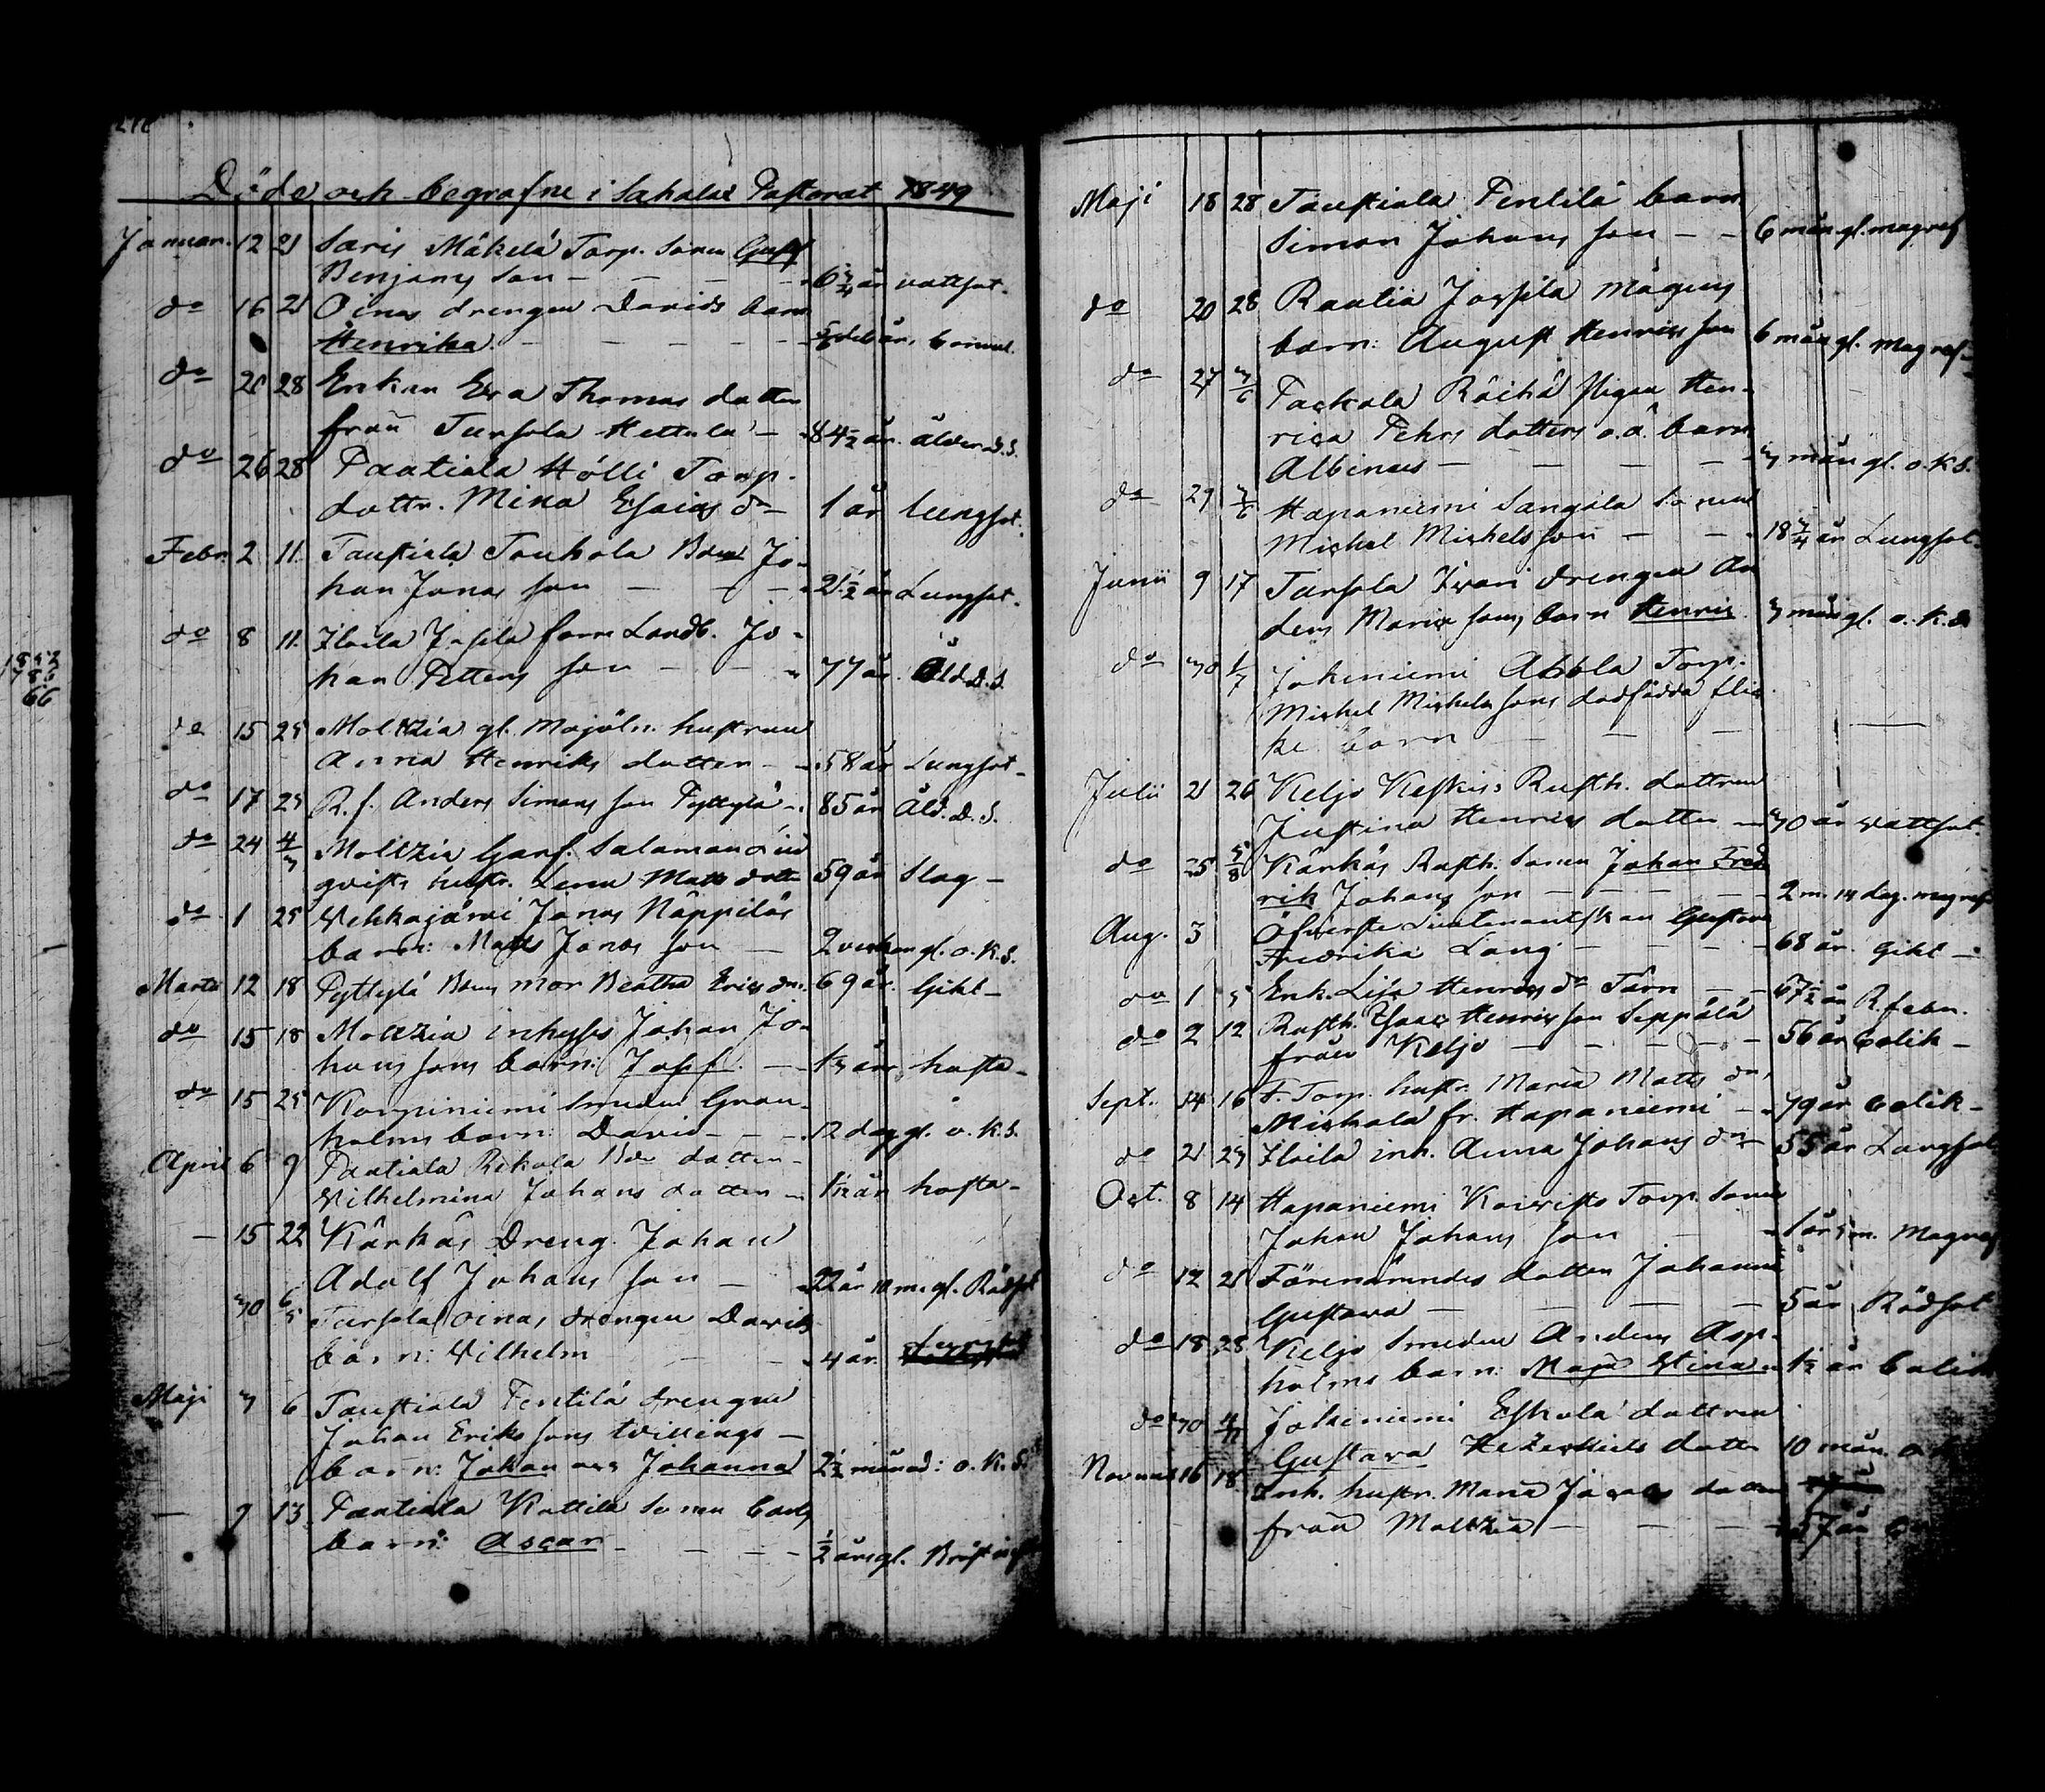 Döde och begrafne i Sahalax Pastorat 1849
Januari. 12 21 Saris Mäkelä Torp. Sonen Gust
Benjams son — — — 6 3/4 år vattsot.
do 16 21 Oinas drengen Davids barn
Henrika. — — — — år,
do 20 28 Enkan Eva Thomas dotter
från Tursola Hettula — 84 1/2 år. ålder. D. S.
do 26 28 Pautiala Hölli Torp.
dottr. Mina Esaias dr 1 år lungsot.
Febr. 2 11. Taustiala Touhola Bdn Jo-
han Jonas son — — — 21 1/2 år Lungsot.
do 8 11. Iloila Jussila form Landb. Jo-
han Petters son — — 77 år. Åld. D. S.
do 15 25 Moltzia gl. Mojöln. hustrun
Anna Henriks dotter — 58 år Lungsot —
do 17 25 R. f. Anders Simons son Pyttylä — 85 år Åld. D. S.
do 24 4/3 Moltzia Garf. Salamon
qvists hustr. Lena Matts dotter 59 år Slag —
do 1 25 Vehkajärvi Jonas Näppiläs
barn: Matts Jonas son — 2 veckor gl. o. k. S.
Martii 12 18 Pyttylä Bdns mor Beatha Erics dr. 69 år. Gikt —
do 15 18 Moltzia inhyses Johan Jo-
hans sons barn: Josef. — 1/3 år hosta —
do 15 25 Korpiniemi Smeden Gran-
holms barn: David — — 12 dag gl. o. k. S.
April 6 9 Pautiala Rekola Bdr dotter
Vilhelmina Johans dotter — 1/12 år hosta —
— 15 22 Kärkäs Dreng Johan
Adolf Johans son — 22 år 10 m. gl. Rödsot
30 6/5 Tursola Oinas drengen Davids
barn: Vilhelm — — 4 år. Lungsot
Maji 3 6 Taustiala Pentilä drengen
Johan Eriks sons tvillings —
barn: Johan och Johanna 2 1/2 månad: o. k. S.
— 9 13. Pautiala Kattila Sonen Carls
barn: Oscar — — — — 1/2 års gl. Bröst
Maji 18 28 Taustiala Pentilä barn
Simon Johans son — — 6 mån gl. magref
do 20 28 Rautia Jussila Mågens
barn: August Henrics son 6 mån gl. Magref —
do 27 3/6 Packala Räihä Pigan Hen-
rica Pehrs dotters o. ä. barn
Albinus — — — — 3 mån gl. o. k. S.
do 29 3/6 Hapaniemi Sangila Sonen
Michel Michels son — — 18 3/4 år Lungsot.
Junii 9 17 Tursola Iivari drengen An
ders Maria sons barn Henric 3 mån gl. o. k. S
do 30 1/7 Joheniemi Abbla Torp.
Michel Michels sons dödfödda flic
ke barn — — — ——
Julii 21 26 Keljo Keskis Rusth. dottren
Justina Henrics dotter — 30 år vattsot.
do 25 5/8 Kärkäs Rusth. Sonen Johan Fred
rik Johans son — — — — 2 m. 14 dag. magref
Aug. 3 Öfverste Lieutenantskan Gustava
Fredrika Lang. — — — — 68 år. Gikt —
do 1 5 Enk. Lisa Henrics dr Tärn — — 67 1/2 år R. feber.
do 2 12 Rusth. Isaac Henrics son Seppälä
från Keljo — — — — — 56 år Colik —
Sept. 14 16 F. Torp. hustr. Maria Matts dr,
Mickala fr. Hapaniemi — 79 år Colik —
do 21 23 Iloila inh. Anna Johans dr — 55 år Lungsot
Oct. 8 14 Hapaniemi Koivisto Torp. Sonen
Johan Johans son — — 1 år 5 m. Magref
do 12 21 Förenämndes dotter Johanna
Gustava — — — — 5 år Rödsot
do 18 28 Keljo Smeden Anders Asp-
holms barn: Maja Stina 1 1/2 år Colik
do 30 4/11 Joheniemi Eskola dottren
Gustava Hezekiels dotter 10 mån. o. k
November 16 18 Inh. hustr. Maria Jacobs dotter
från Moltzia — — — 57 år